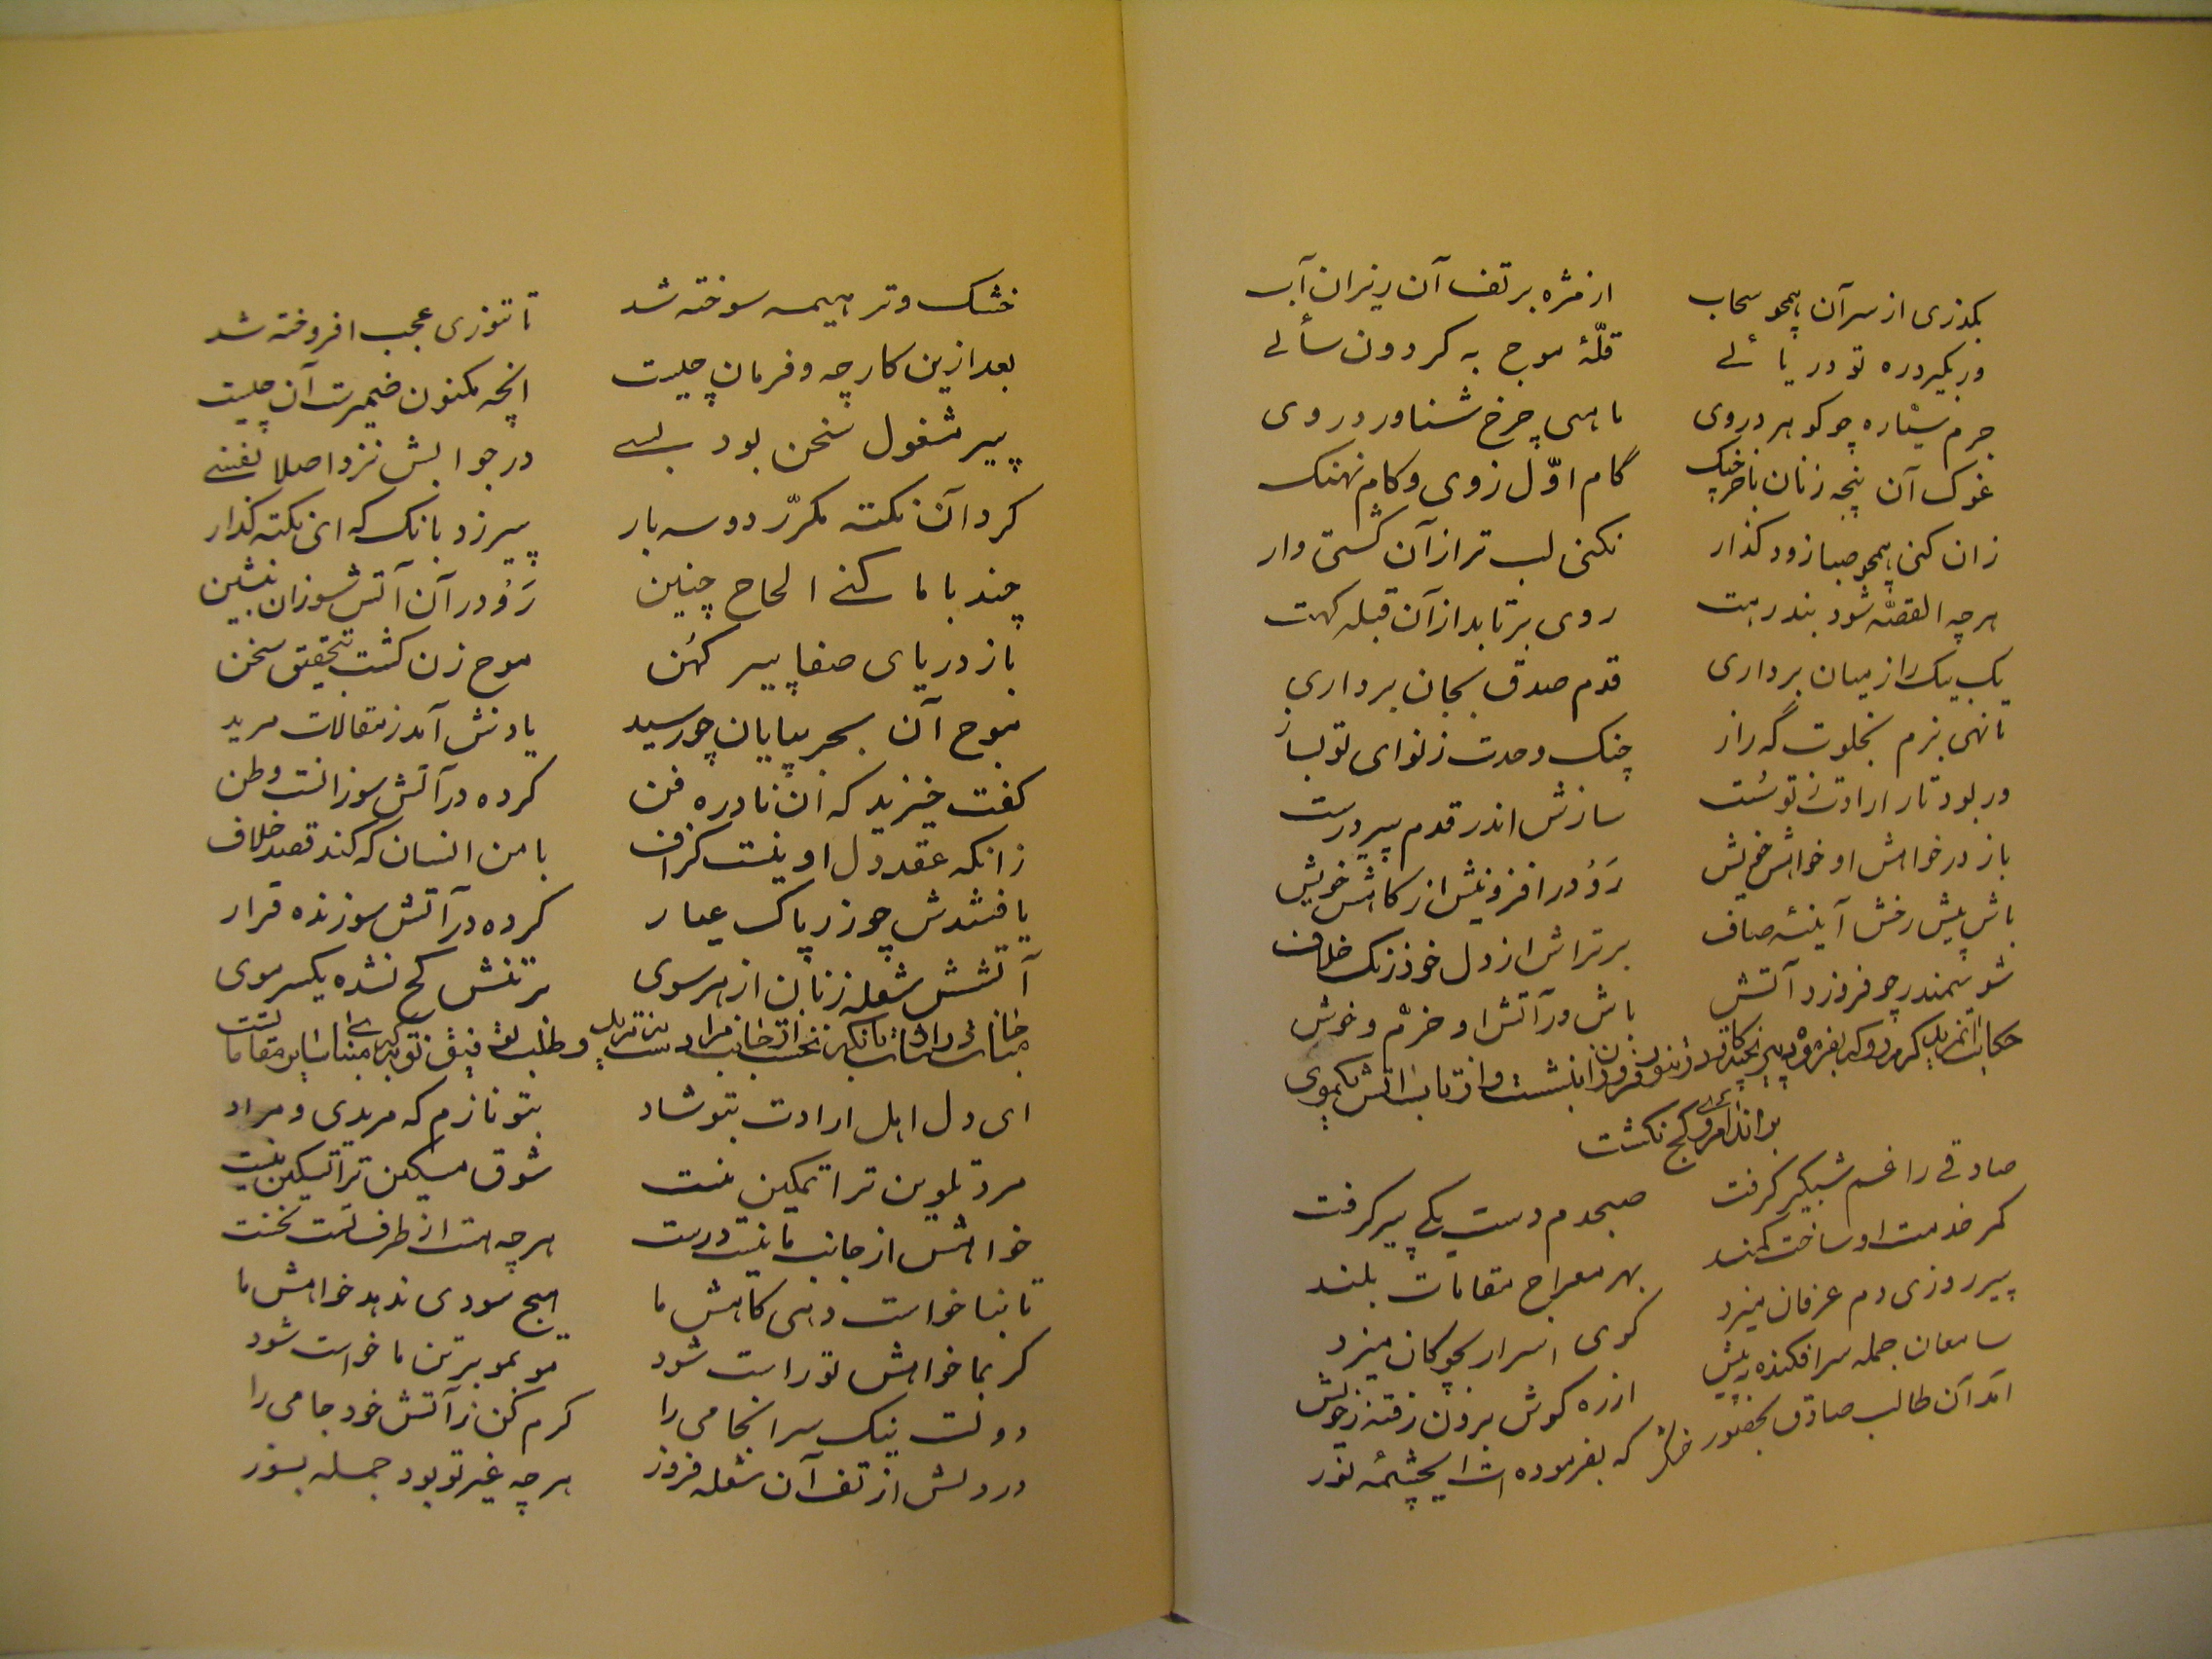 بکذری از سر آن همچو سحاب از مژه بر تف آن ریزان آب
ور بکیرد ره تو دریائے قلّهٔ موج به کردون سائے
جرم سیّاره چو کوهر در وی ماهی چرخ شناور در وی
غوک آن پنجه زنان با خرچنک گام اوّل زوی و کام نهنک
زان کنی همچو صبا زود کذار نکنی لب تر ازان کشتی وار
هر چه القصّه شود بند رهت روی برتابد از آن قبله کهت
یک بیک را ز میان برداری قدم صدق بجان برداری
تا نهی بزم بخلوت گه راز چنک وحدت ز نوای تو بساز
ور بود تار ارادت ز تو سُست سازش اندر قدم پیر درست
باز در خواهش او خواهش خویش رَو در افزونیش از کاهش خویش
باش پیش رخش آیینهٔ صاف برتراش از دل خود زنک خلاف
شو سمندر چو فروزد آتش باش در آتش او خرّم و خوش
حکایت آن مرید کرم رو که بفرمودهٔ پیر نچنته کار در تنور فروزان نشست و از تاب آتش یکموی
بر اندام وی کج نکشت
صادقے را غم شبکیر کرفت صبحدم دست یکے پیر کرفت
کمر خدمت او ساخت کمند بهر معراج مقامات بلند
پیر روزی دم عرفان میزد کوی اسرار بچوکان میزد
سامعان جمله سر افکنده به پیش از ره کوش برون رفته ز خویش
آمد آن طالب صادق بحضور که بفرموده ات ای چشمهٔ نور
خشک و تر هیمه سوخته شد تا تنوری عجب افروخته شد
بعد ازین کار چه و فرمان چیست آنچه مکنون ضمیرست آن چیست
پیر مشغول سخن بود بسے در جوابش نزد اصلا نفسے
کرد آن نکته مکرّر دو سه بار پیر زد بانک که ای نکته کذار
چند با ما کنے الحاح چنین رَو در آن آتش سوزان بنشین
باز دریای صفا پیر کهُن موج زن کشت بتحقیق سخن
موج آن بحر بپایان چو رسید یادش آمد ز مقالات مرید
کفت خیزید که آن نادره فن کرده در آتش سوزانست وطن
زانکه عقد دل او نیست کزاف با من انسان که کند قصد خلاف
یافتندش چو زر پاک عیار کرده در آتش سوزنده قرار
آتشش شعله زنان از هر سوی بر تنش کج نشده یکسر موی
ای دل اهل ارادت بتو شاد بتو نازم که مریدی و مراد
مرد تلوین ترا تمکین نیست شوق مسکین ترا تسکین نیست
خواهش از جانب ما نیست درست هر چه هست از طرف تست نخست
تا بنا خواست دهی کاهش ما هیچ سودی ندهد خواهش ما
کر بما خواهش تو راست شود مو بمو بر تن ما خواست شود
دولت نیک سرانجامی را کرم کن ز آتش خود جامی را
در دلش از تف آن شعله فروز هر چه غیر تو بود جمله بسوز